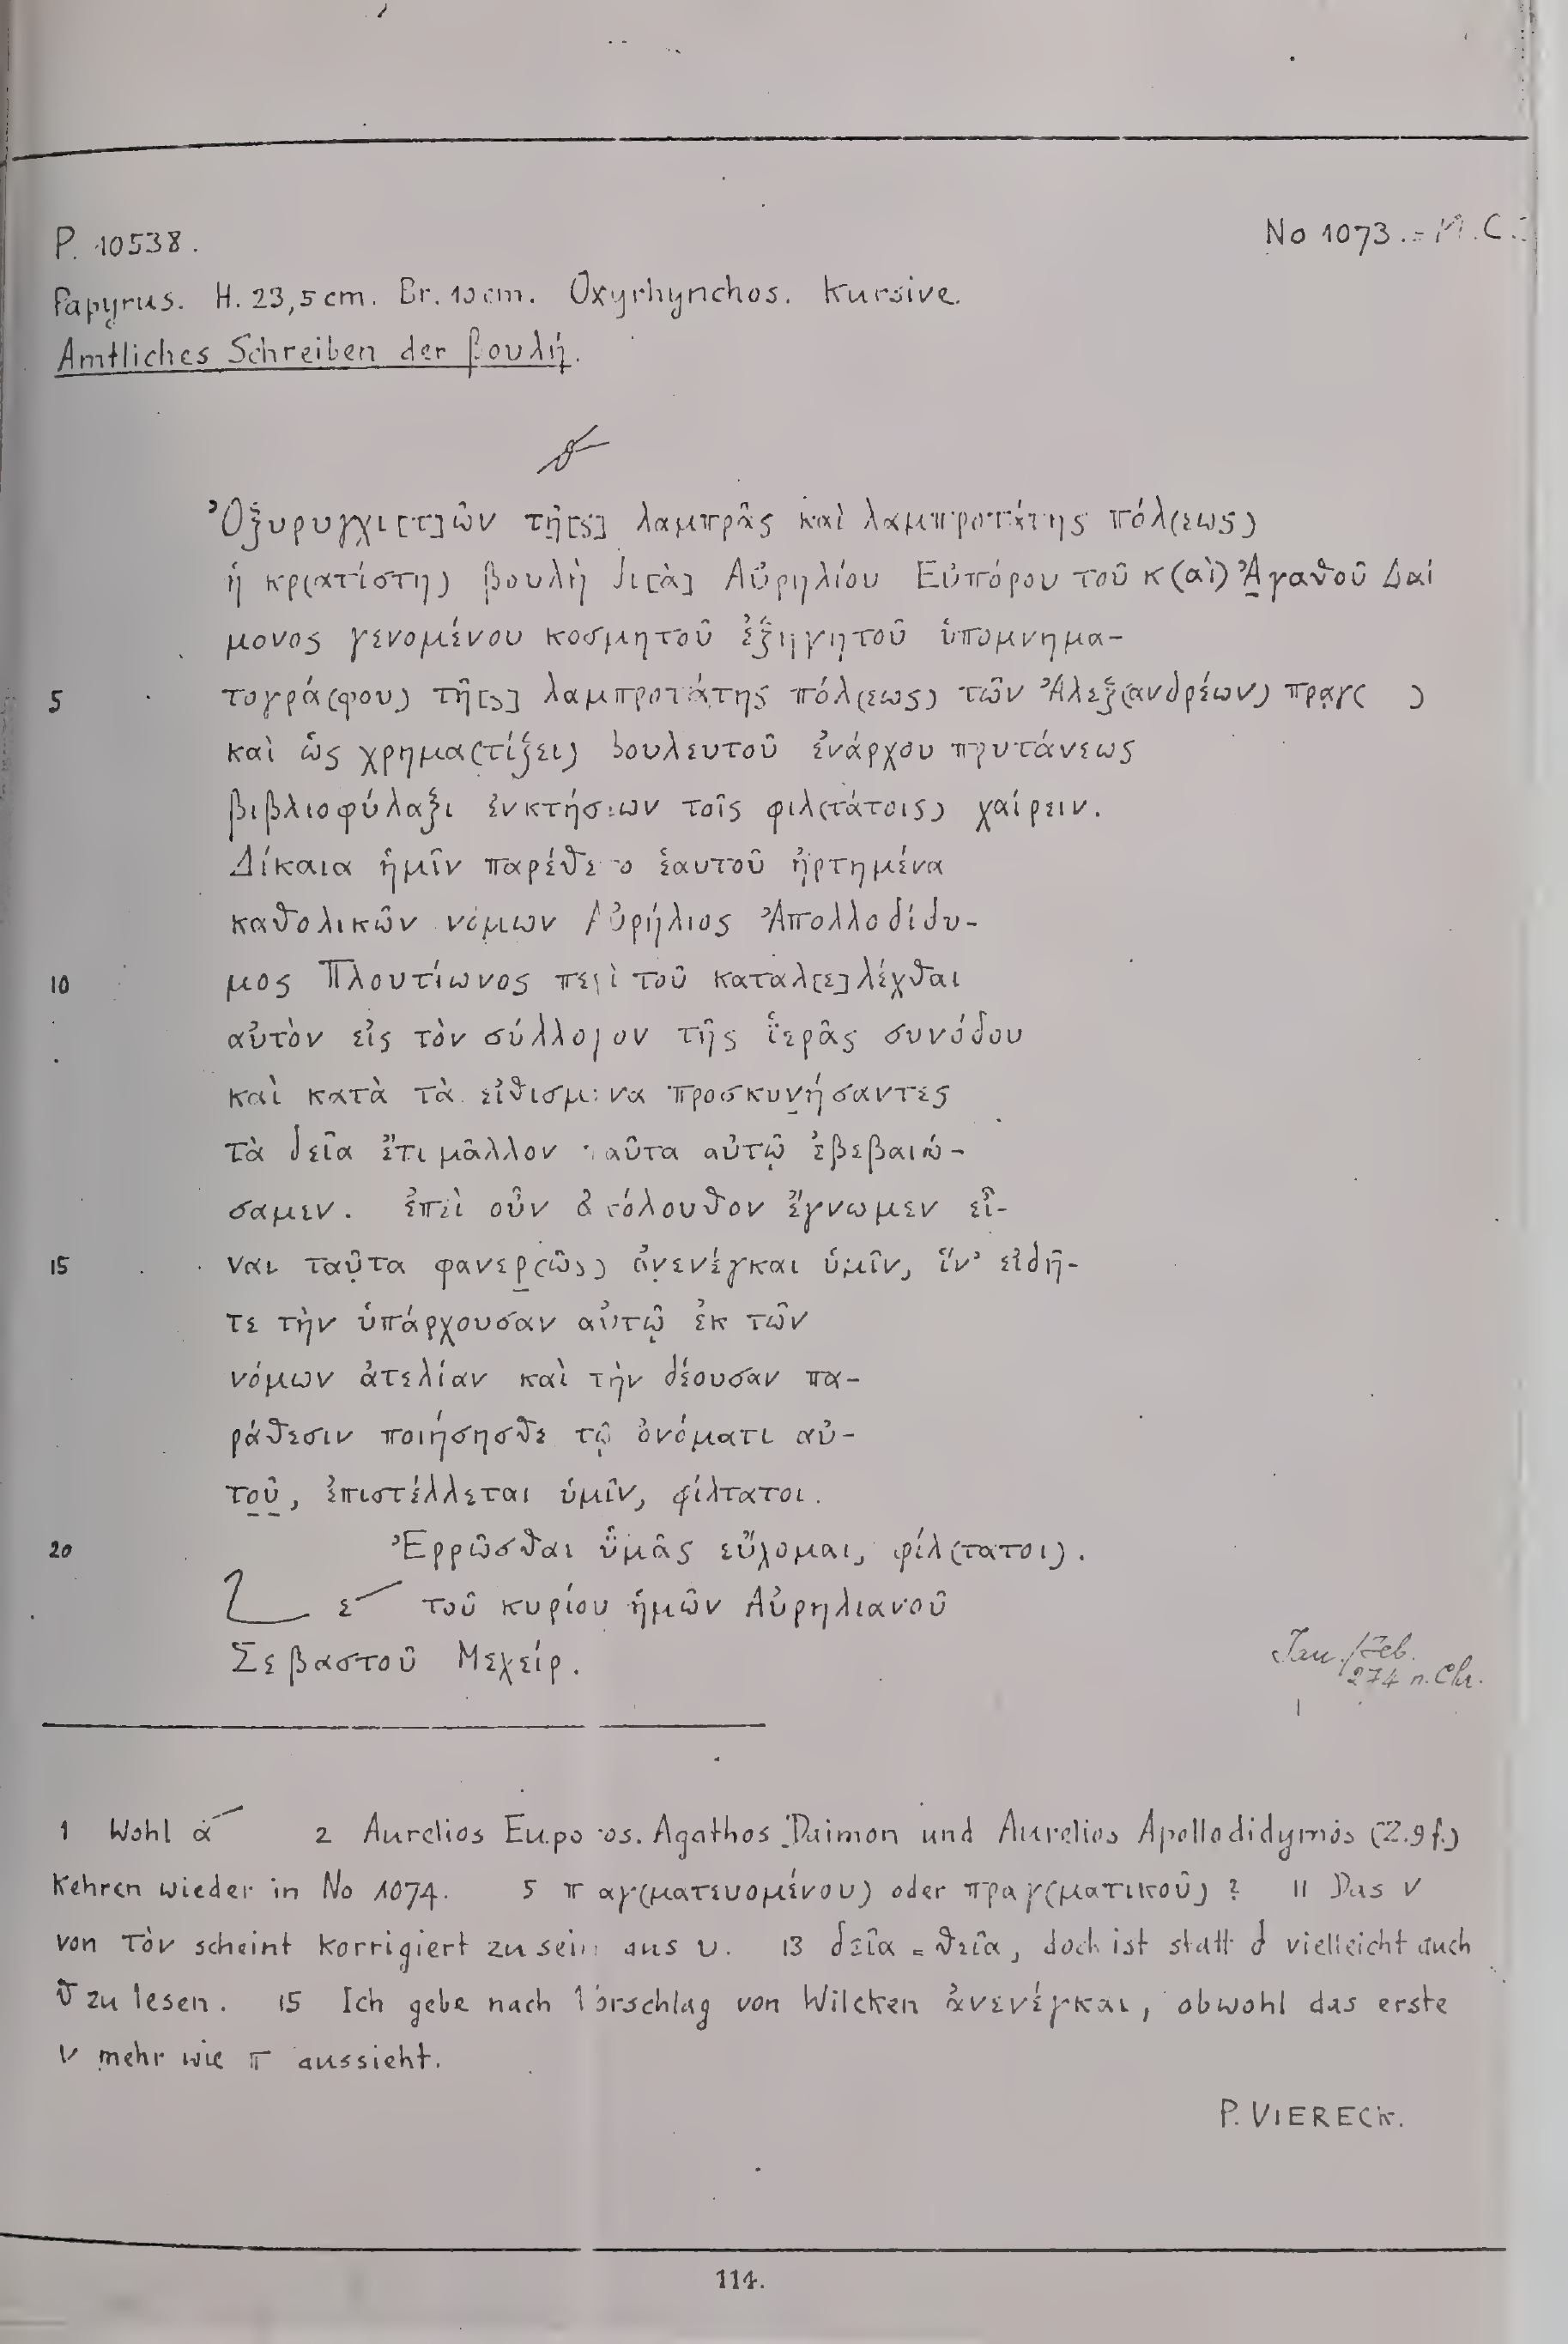 P. 10538.
No 1073. = M. C.
Papyrus. H. 23,5 cm. Br. 10 cm. Oxyrhynchos. Kursive.
Amtliches Schreiben der βουλή.
Ὀξυρυγχι[τ]ῶν τῆ[ς] λαμπρᾶς καὶ λαμπροτάτης πόλ(εως)
ἡ κρ(ατίστη) βουλὴ δι[ὰ] Αὐρηλίου Εὐπόρου τοῦ κ(αὶ) Ἀ̣γαθοῦ Δαί
μονος γενομένου κοσμητοῦ ἐξηγητοῦ ὑπομνημα-
5 τογρά(φου) τῆ[ς] λαμπροτάτης πόλ(εως) τῶν Ἀλεξ(ανδρέων) πρα̣γ( )
καὶ ὡς χρημα(τίζει) βουλευτοῦ ἐνάρχου πρυτάνεως
βιβλιοφύλαξι ἐνκτήσεων τοῖς φιλ(τάτοις) χαίρειν.
Δίκαια ἡμῖν παρέθετο ἑαυτοῦ ἠρτημένα
καθολικῶν νόμων Αὐρήλιος Ἀπολλοδίδυ-
10 μος Πλουτίωνος περὶ τοῦ καταλ[ε]λέχθαι
αὐτὸν εἰς τὸν σύλλογον τῆς ἱ̈ερᾶς συνόδου
καὶ κατὰ τὰ εἰθισμένα προσκυν̣ήσαντες
τὰ δεῖα ἔτι μᾶλλον ταῦτα αὐτῷ ἐβεβαιώ-
σαμεν. ἐπεὶ οὖν ἀκόλουθον ἔγνωμεν εἶ-
15 ναι ταῦτα φανερ̣(ῶς) ἀν̣ενέγκαι ὑμῖν, ἵν' εἰδῆ-
τε τὴν ὑπάρχουσαν αὐτῷ ἐκ τῶν
νόμων ἀτελίαν καὶ τὴν δέουσαν πα-
ράθεσιν ποιήσησθε τῷ ὀνόματι αὐ-
το̣ῦ̣, ἐπιστέλλεται ὑμῖν, φίλτατοι.
20 Ἐρρῶσθαι ὑ̈μᾶς εὔχομαι, φίλ(τατοι).
𐅹 ε τοῦ κυρίου ἡμῶν Αὐρηλιανοῦ
Σεβαστοῦ Μεχείρ.
Jan./Feb.
274 n. Chr.
1 Wohl α 2 Aurelios Euporos. Agathos Daimon und Aurelios Apollodidymos (Z. 9 f.)
kehren wieder in No 1074. 5 πραγ(ματευομένου) oder πραγ(ματικοῦ)? 11 Das ν
von τὸν scheint korrigiert zu sein aus υ. 13 δεῖα = θεῖα, doch ist statt δ vielleicht auch
θ zu lesen. 15 Ich gebe nach Vorschlag von Wilcken ἀνενέγκαι, obwohl das erste
ν mehr wie π aussieht.
P. VIERECK.
114.